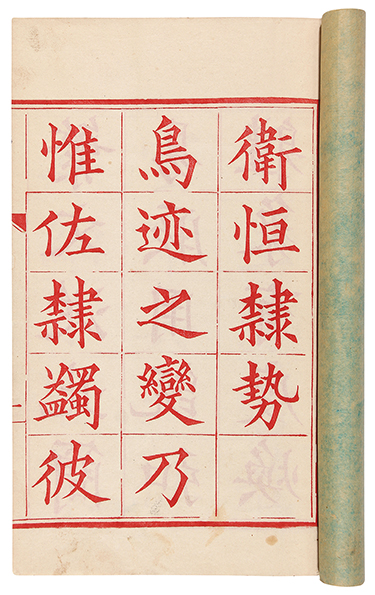 衛恒隸勢
鳥迹之變乃
惟佐隸蠲彼